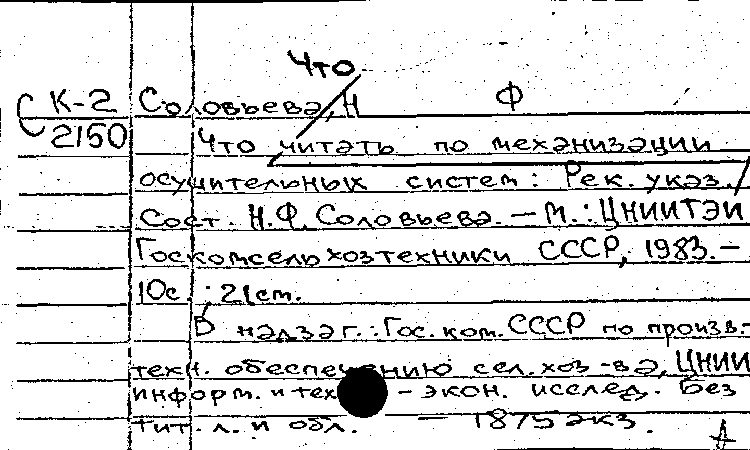 Что
С К-2 Соловьева, Н Ф
2150 Что читать по механизации
осушительных систем: Рек. указ./
Сост. Н.Ф. Соловьева. – М.: ЦНИИТЭИ
Госкомсельхозтехники СССР, 1983. –
10с.; 21см.
В надзаг.: Гос. ком. СССР по произв.-
техн. обеспечению сел. хоз-ва, ЦНИИ
информ. и тех – экон. исслед. Без
тит. л. и обл. – 1875 экз.